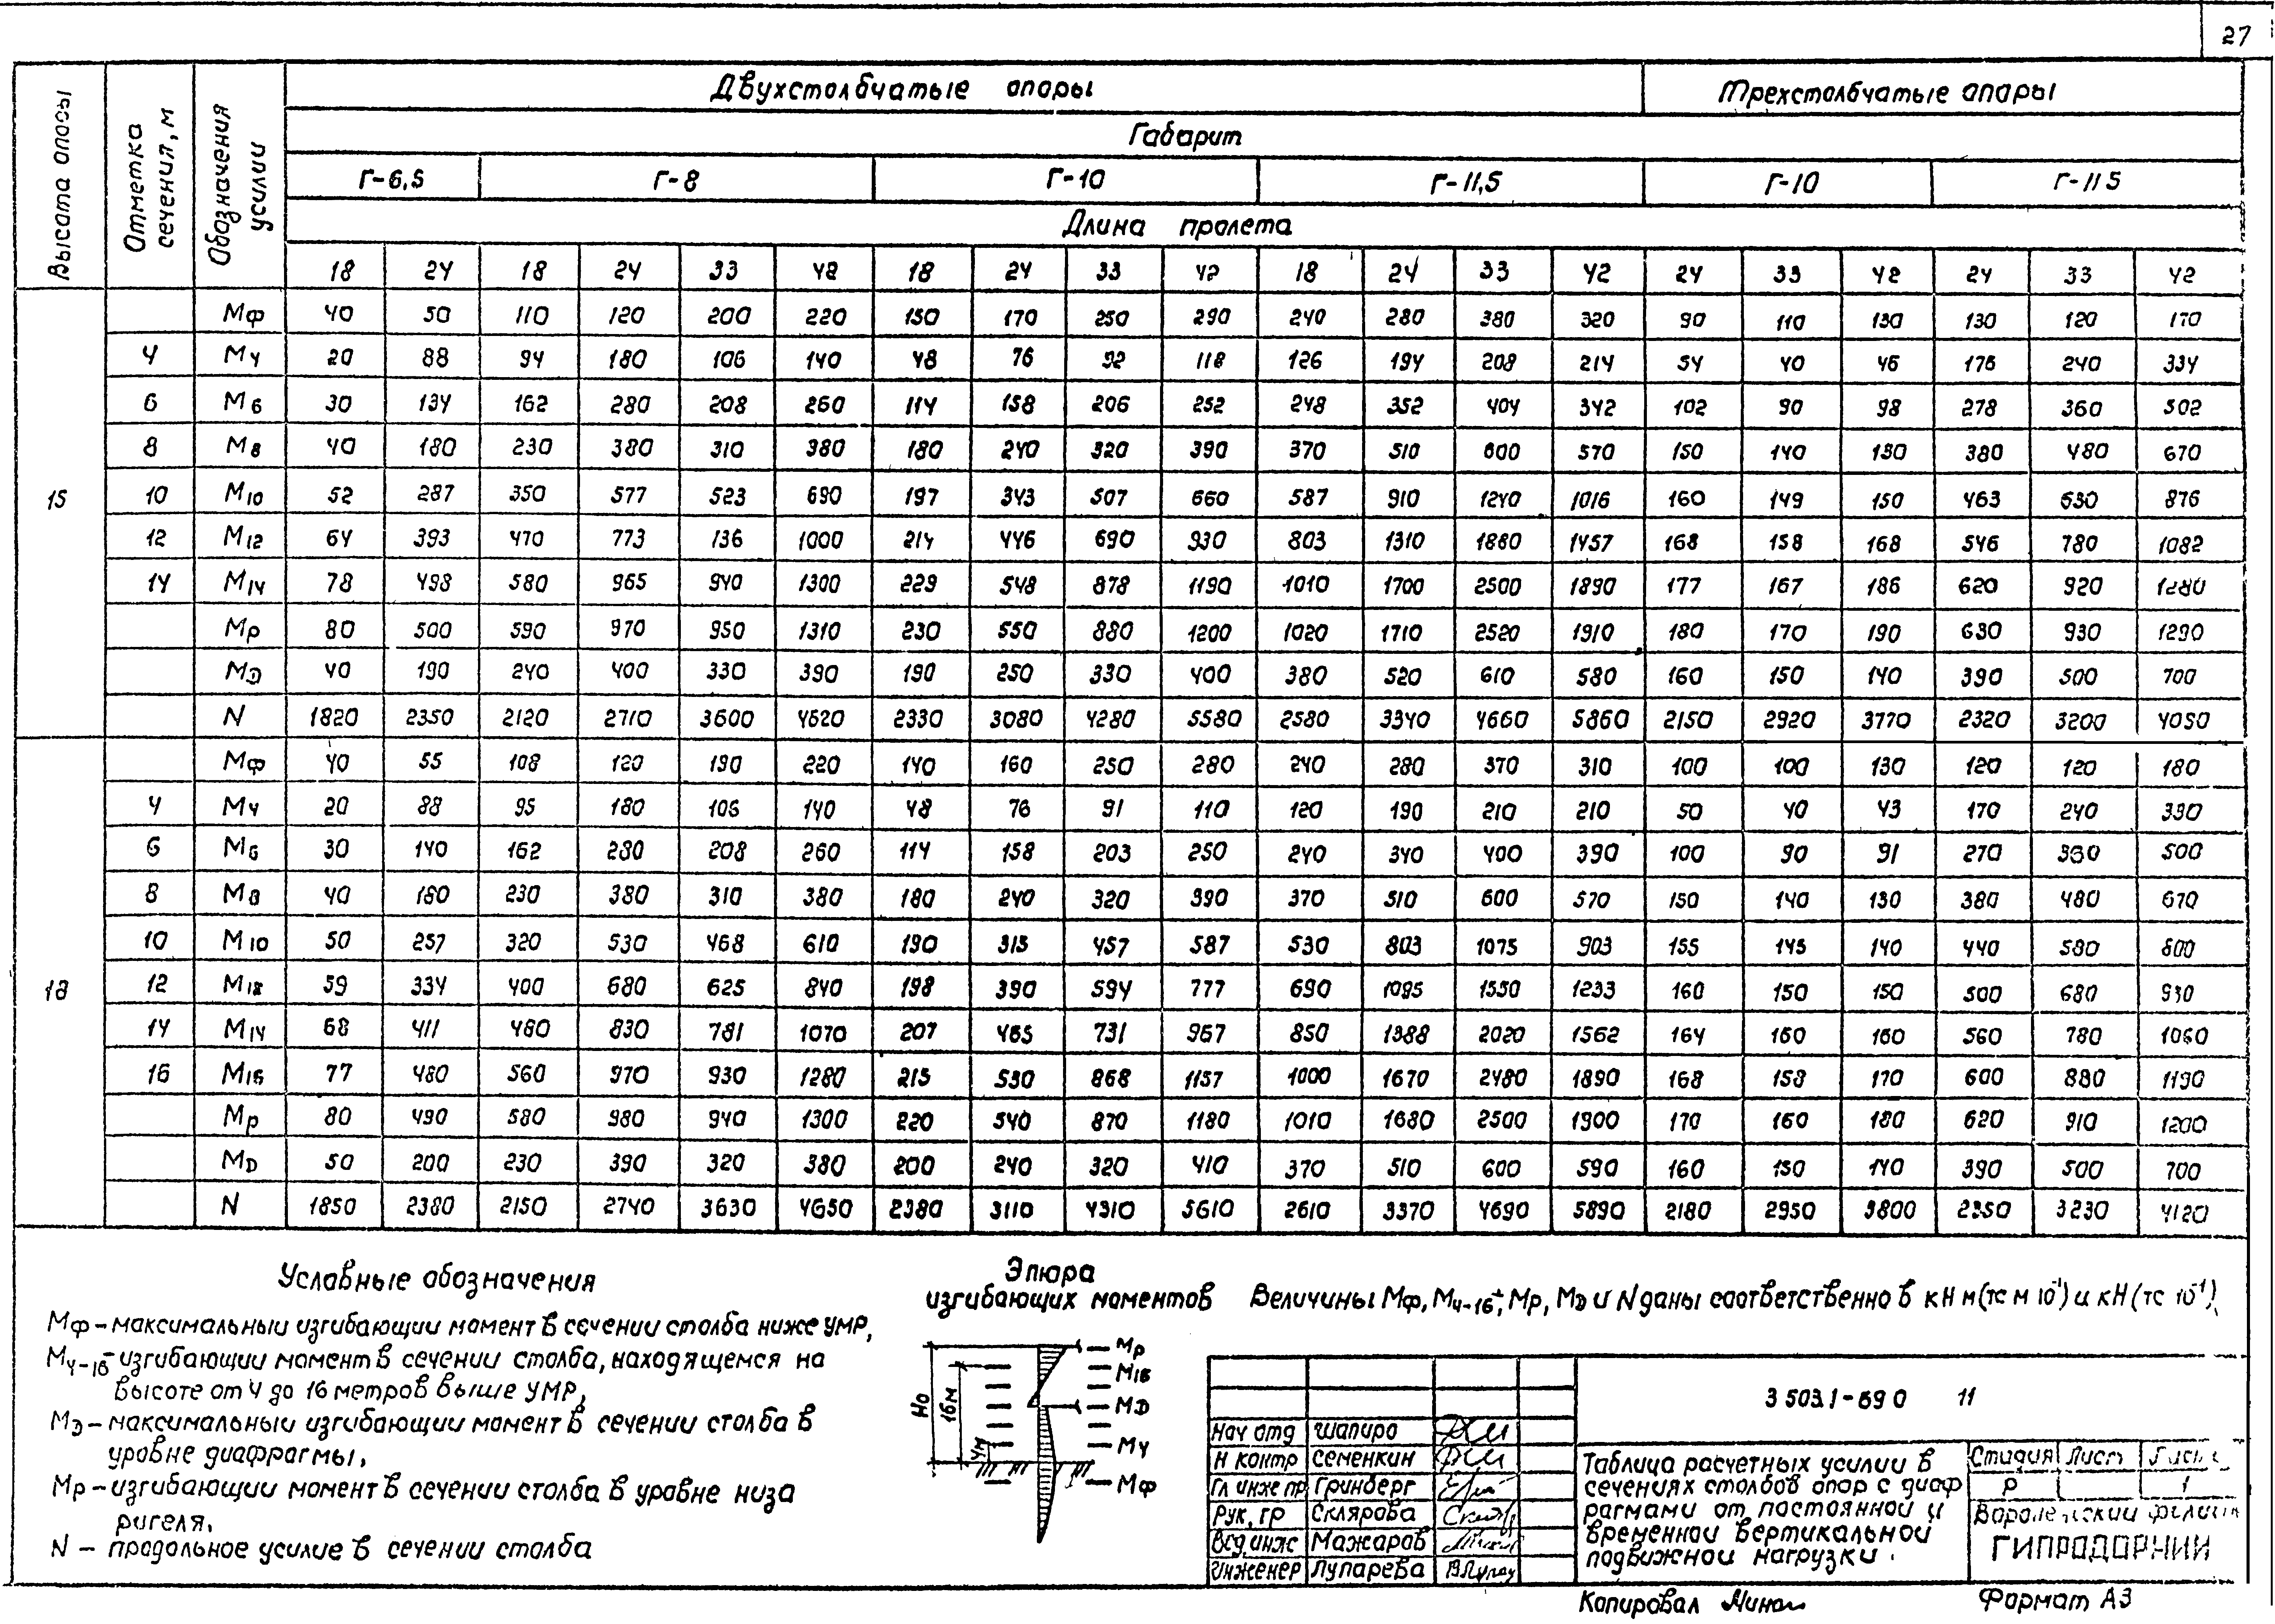 27
Высота опоры
Отметка сечения, м
Обозначения усилии
Двухстолбчатые опоры Трехстолбчатые опоры
Габарит
Г-6,5 Г-8 Г-10 Г-11,5 Г-10 Г-11 5
Длина пролета
18 24 18 24 33 42 18 24 33 42 18 24 33 42 24 33 42 24 33 42
15
Мф 40 50 110 120 200 220 150 170 250 290 240 280 380 320 90 110 130 130 120 170
4 М4 20 88 94 180 106 140 48 76 92 118 126 194 208 214 54 40 46 176 240 334
6 М6 30 134 162 280 208 260 114 158 206 252 248 352 404 342 102 90 98 278 360 502
8 М8 40 180 230 380 310 380 180 240 320 390 370 510 600 570 150 140 130 380 480 670
10 М10 52 287 350 577 523 690 197 343 507 660 587 910 1240 1016 160 149 150 463 630 876
12 М12 64 393 470 773 136 1000 214 446 690 930 803 1310 1860 1457 168 158 168 546 780 1082
14 М14 78 498 580 965 940 1300 229 548 878 1190 1010 1700 2500 1890 177 167 186 620 920 1280
Мр 80 500 590 970 950 1310 230 550 880 1200 1020 1710 2520 1910 180 170 190 630 930 1290
МД 40 190 240 400 330 390 190 250 330 400 380 520 610 580 160 150 140 390 500 700
N 1820 2350 2120 2710 3600 4620 2330 3080 4280 5580 2580 3340 4660 5860 2150 2920 3770 2320 3200 4090
18
Мф 40 55 108 120 190 220 140 160 250 280 240 280 370 310 100 100 130 120 120 180
4 М4 20 88 95 180 106 140 48 76 91 110 120 190 210 210 50 40 43 170 240 330
6 М6 30 140 162 280 208 260 114 158 203 250 240 340 400 390 100 90 91 270 360 500
8 М8 40 180 230 380 310 380 180 240 320 390 370 510 600 570 150 140 130 380 480 670
10 М10 50 257 320 530 468 610 190 315 457 587 530 803 1075 903 155 145 140 440 580 800
12 М12 59 334 400 680 625 840 198 390 594 777 690 1095 1550 1233 160 150 150 500 680 930
14 М14 68 411 480 830 781 1070 207 465 731 967 850 1388 2020 1562 164 160 160 560 780 1060
16 М16 77 480 560 970 930 1280 215 530 868 1157 1000 1670 2480 1890 168 158 170 600 880 1190
Мр 80 490 580 980 940 1300 220 540 870 1180 1010 1680 2500 1900 170 160 180 620 910 1200
МД 50 200 230 390 320 380 200 240 320 410 370 510 600 590 160 150 140 390 500 700
N 1850 2380 2150 2740 3630 4650 2380 3110 4310 5610 2610 3370 4690 5890 2180 2950 3800 2350 3230 4120
Условные обозначения
Мф – максимальныи изгибающии момент в сечении столба ниже УМР,
М4-16 – изгибающии момент в сечении столба, находящемся на
высоте от 4 до 16 метров выше УМР,
МД – максимальныи изгибающии момент в сечении столба в
уровне диафрагмы,
Мр – изгибающии момент в сечении столба в уровне низа
ригеля.
N – продольное усилие в сечении столба
Эпюра
изгибающих моментов
Но
16м
4м
Мр
М16
МД
М4
Мф
Величины Мф, М4-16, Мр, МД и N даны соответственно в кН м (тс м 10⁻¹) и кН (тс 10⁻¹)
3 503.1-69 0 11
Нач отд Шапиро
Н контр Семенкин
Гл инж пр Гринберг
Рук. гр Склярова
Вед инж Мажаров
Инженер Лупарева
Таблица расчетных усилии в
сечениях столбов опор с диаф
рагмами от постоянной и
временнои вертикальнои
подвижнои нагрузки.
Стадия Лист
Р 1
ГИПРОДОРНИИ
Копировал
Формат А3